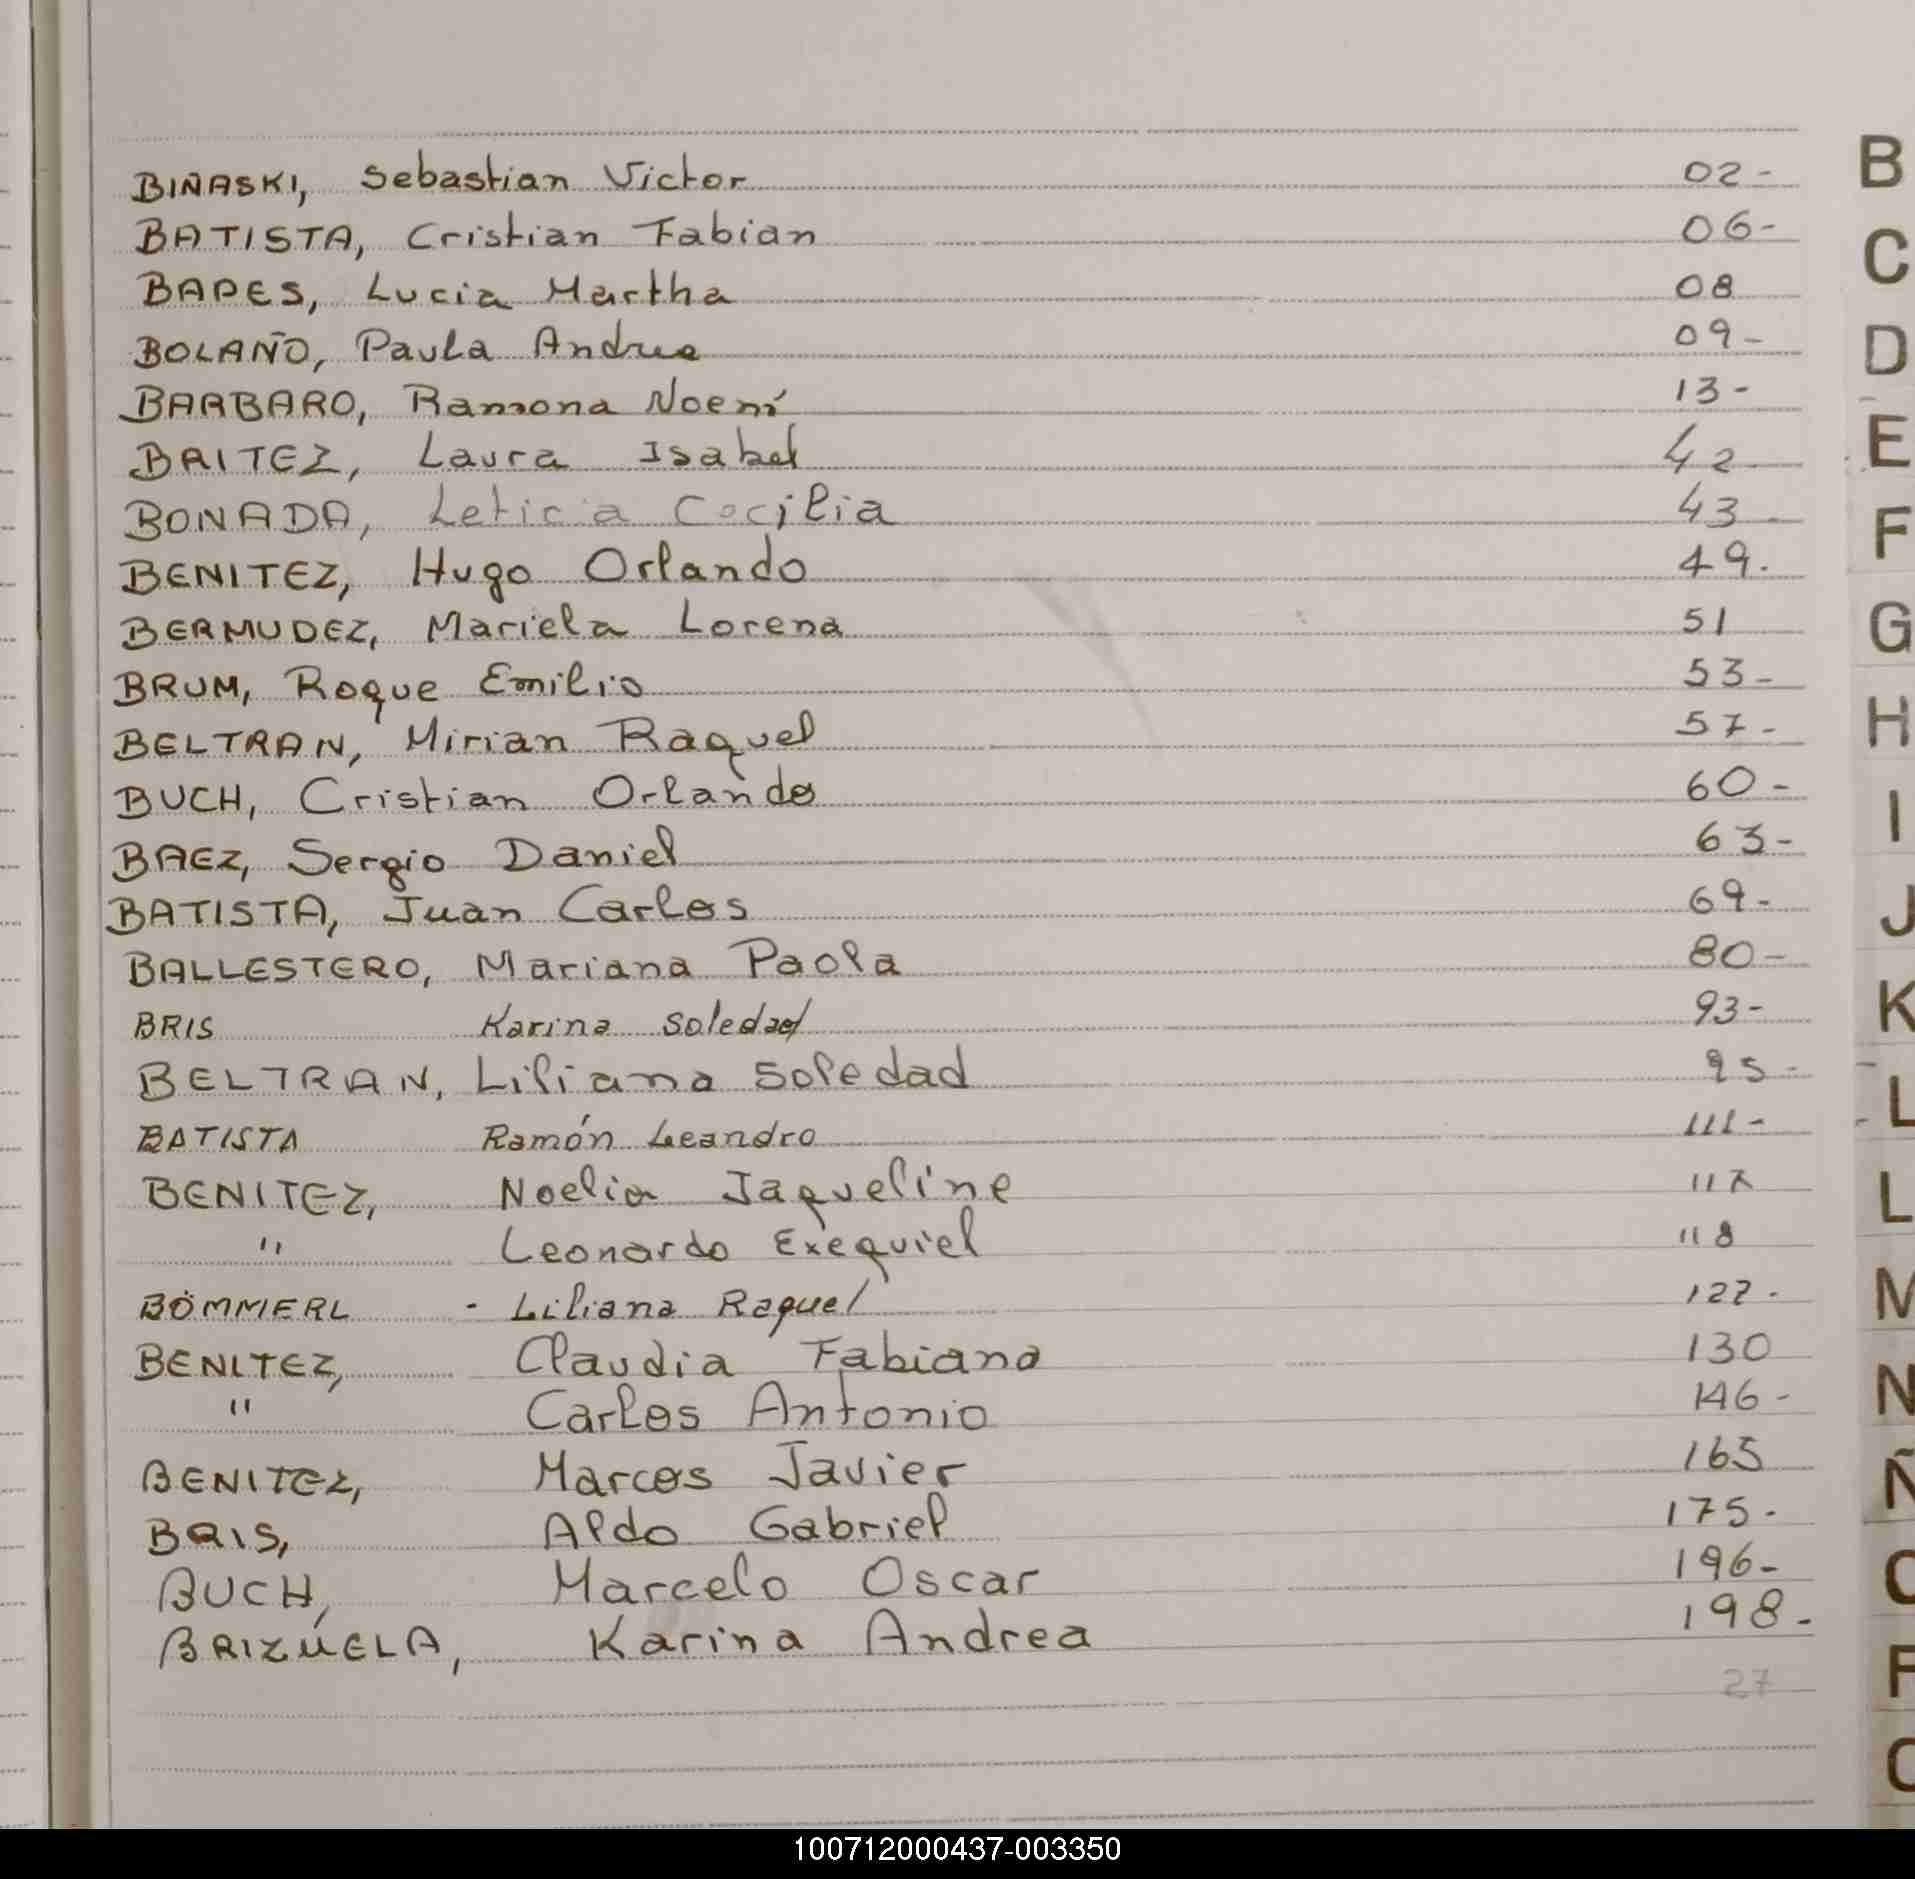 BINASKI, Sebastian Victor 02-
BATISTA, Cristian Fabian 06-
BAPES, Lucia Martha 08
BOLAÑO, Paula Andrea 09-
BARBARO, Ramona Noemí 13-
BAITEZ, Laura Isabel 42
BONADA, Leticia Cecilia 43
BENITEZ, Hugo Orlando 49.
BERMUDEZ, Mariela Lorena 51
BRUM, Roque Emilio 53-
BELTRAN, Mirian Raquel 57-
BUCH, Cristian Orlando 60-
BAEZ, Sergio Daniel 63-
BATISTA, Juan Carlos 69-
BALLESTERO, Mariana Paola 80-
BRIS Karina Soledad 93-
BELTRAN, Liliana Soledad 95-
BATISTA Ramón Leandro 111-
BENITEZ, Noelia Jaqueline 117
" Leonardo Exequiel 118
BÖMMERL - Liliana Raquel 127.
BENITEZ, Claudia Fabiana 130
" Carlos Antonio 146-
BENITEZ, Marcos Javier 165
BRIS, Aldo Gabriel 175.
BUCH, Marcelo Oscar 196-
BRIZUELA, Karina Andrea 198.
27
B
C
D
E
F
G
H
I
J
K
L
L
M
N
Ñ
O
P
100712000437-003350